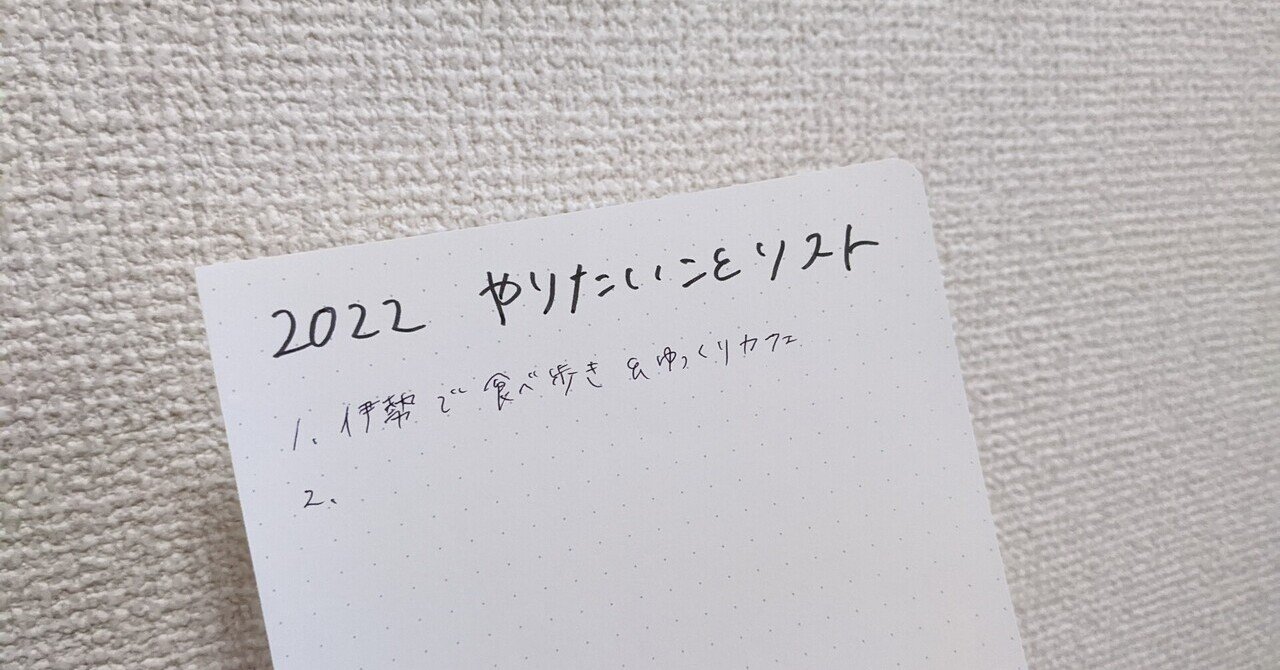 2022 やりたいことリスト
1. 伊勢で食べ歩き&ゆっくりカフェ
2.